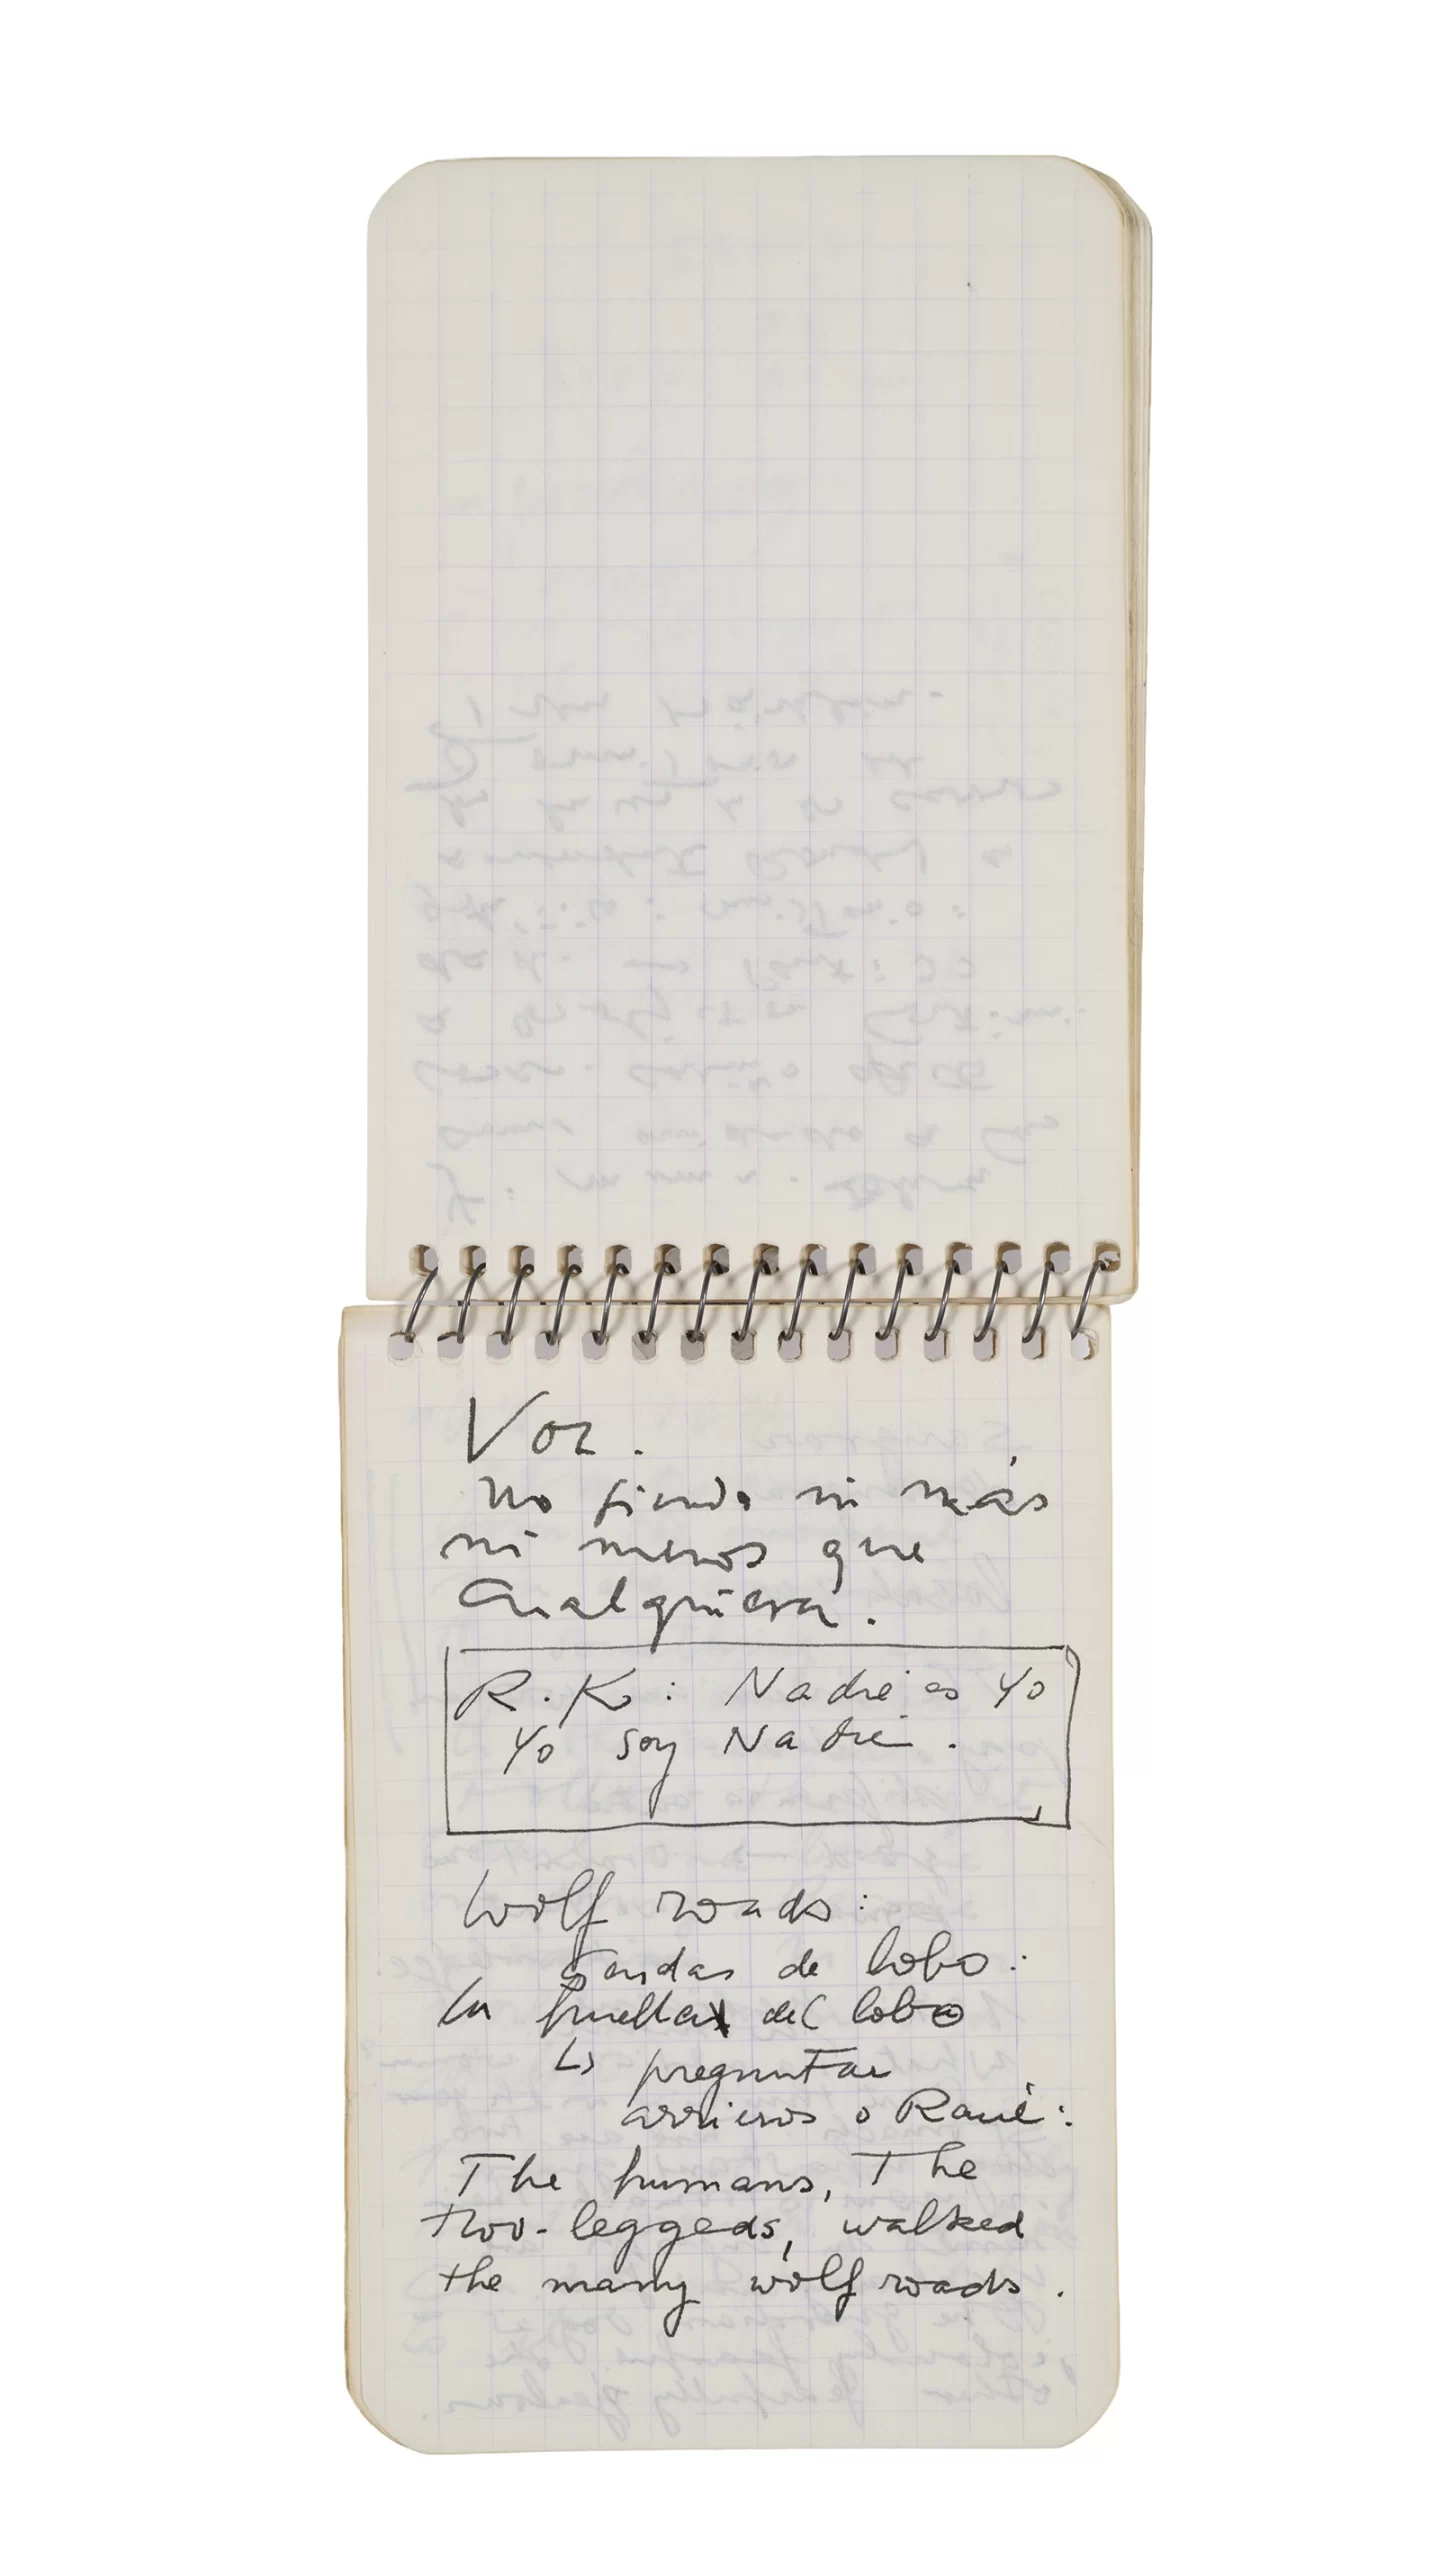 Voz.
no siendo ni más
ni menos que
cualquiera.
R.K: Nadie es yo
yo soy Nadie.
Wolf roads:
sendas de lobo:
la huella del lobo
↳ preguntar
arrieros o Raúl:
The humans, The
two-leggeds, walked
the many wolf roads.